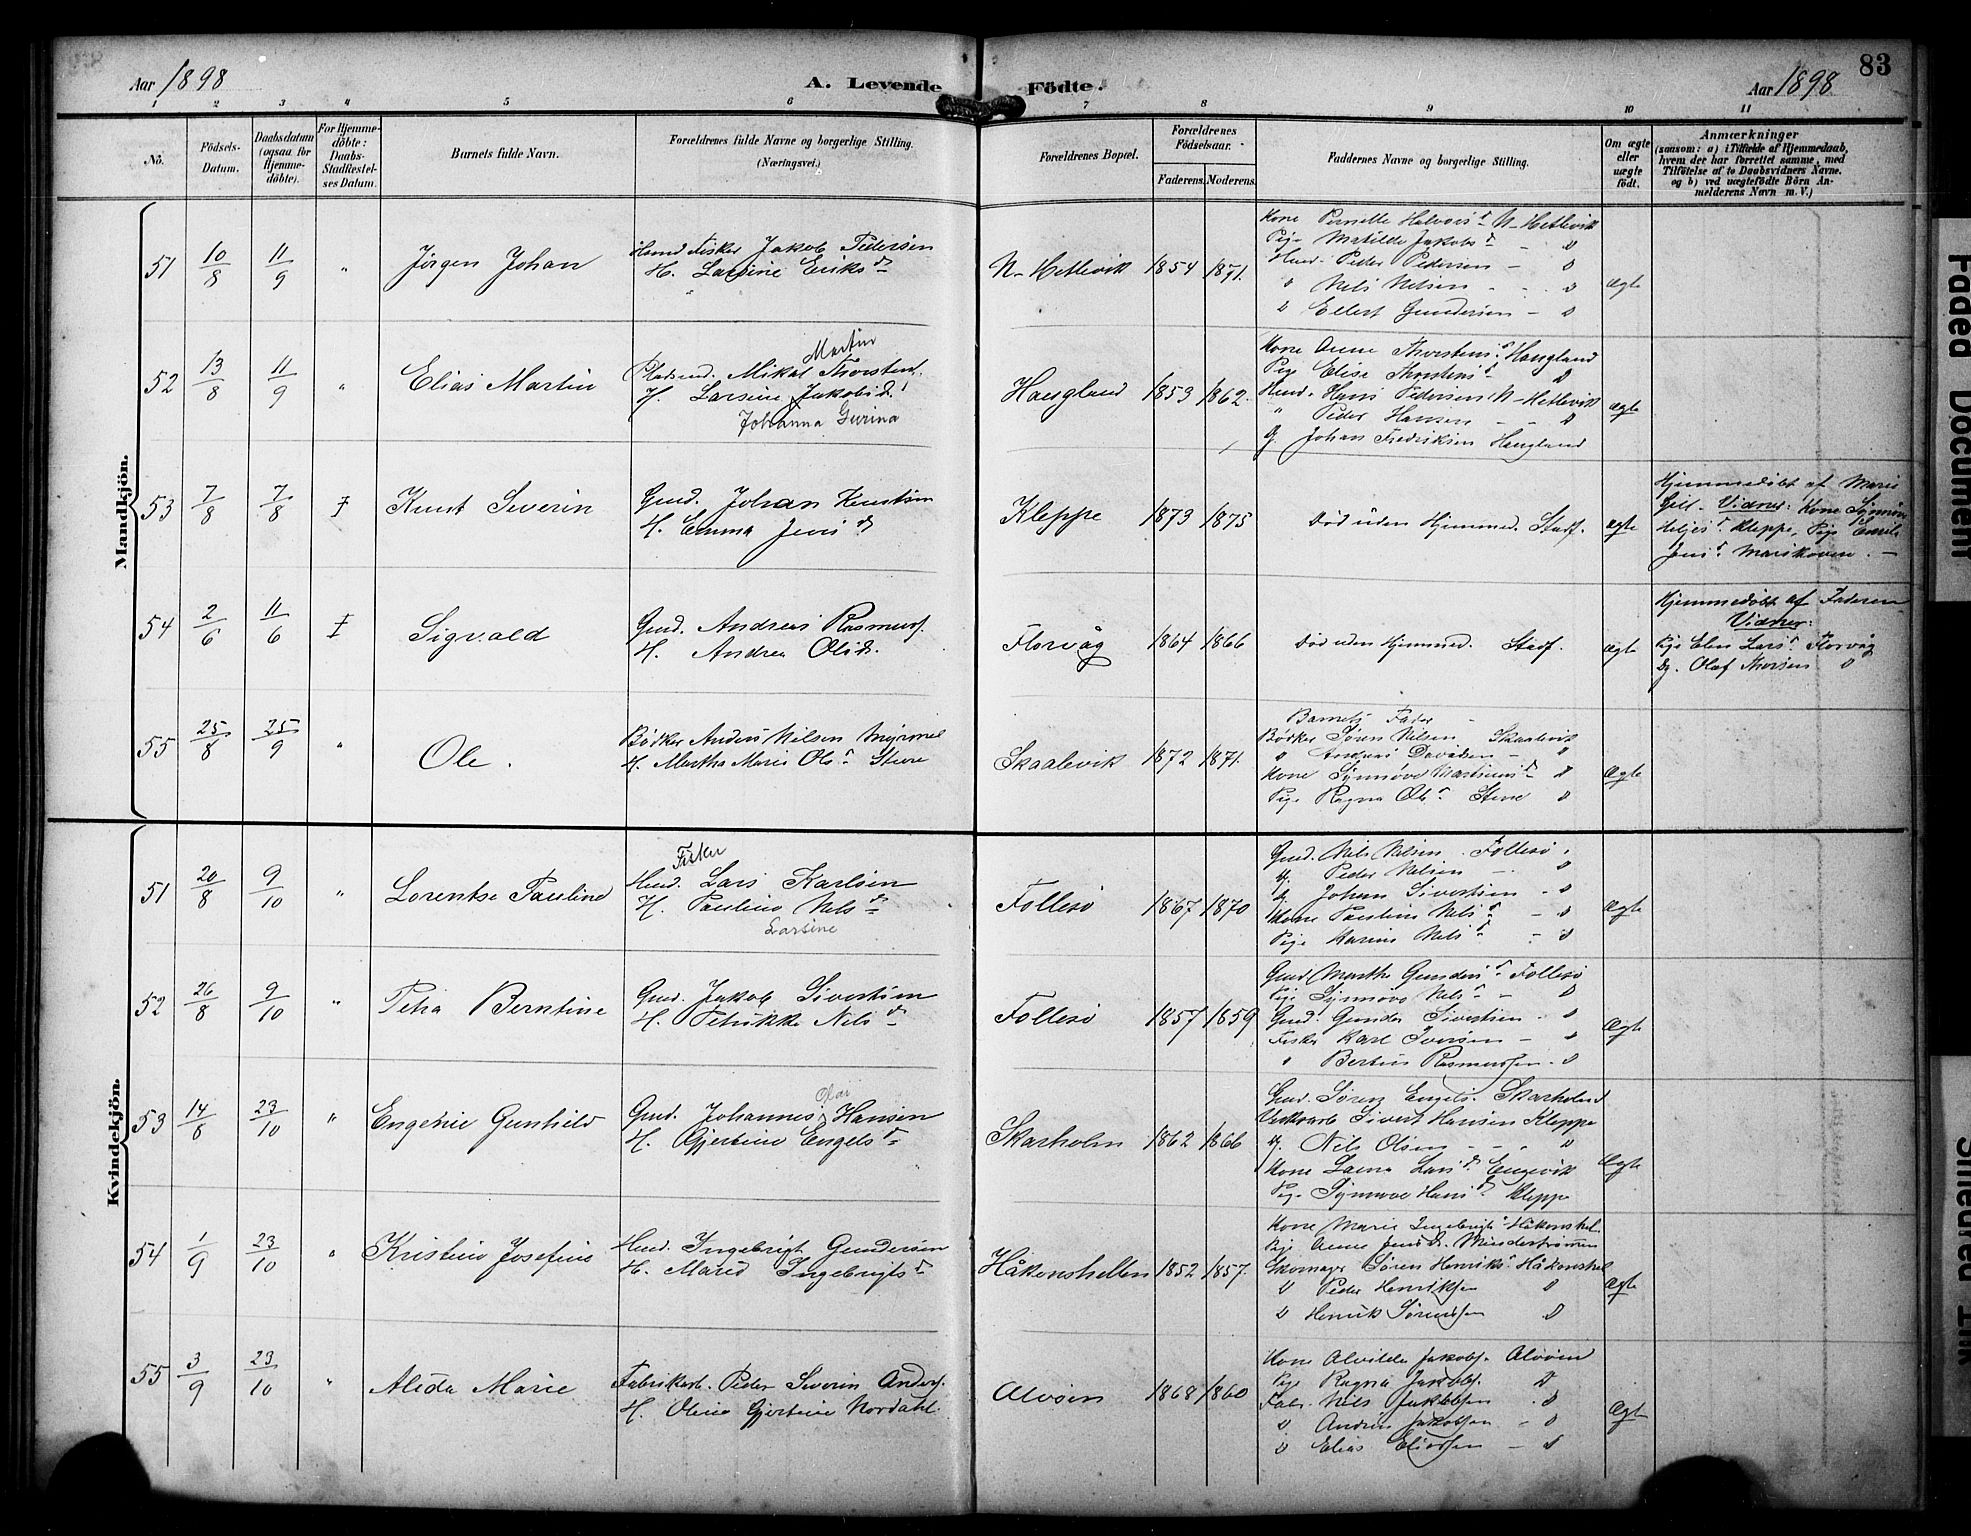 83
Aar 1898
A. Levende Födte.
Aar 1898
1 2 3 4 5 6 7 8 9 10 11
No.
Födsels-Datum.
Daabsdatum (ogsaa for Hjemme-döbte).
For Hjemme-döbte: Daabs-Stadfæstel-ses Datum.
Barnets fulde Navn.
Forældrenes fulde Navne og borgerlige Stilling. (Næringsvei.)
Forældrenes Bopæl.
Forældrenes Födselsaar.
Faderens. Moderens.
Faddernes Navne og borgerlige Stilling.
Om ægte eller uægte födt.
Anmærkninger
(saasom: a) i Tilfælde af Hjemmedaab,
hvem der har forrettet samme, med
Tilföielse af to Daabsvidners Navne.
og b) ved uægtefödte Börn An-
melderens Navn m. V.)
Mandkjön.
51 10/8 11/9 " Jörgen Johan
Huusmd Fisker Jakob Pedersen
H. Larsine Eriksd.
N-Hetlevik 1854 1871.
Kone Pernelle Halvorsd. N-Hetlevik
Pige Matilde Jakobsd. - "
Huusmd. Peder Pedersen - "
" Nels Nelsen - "
" Ellert Gundersen - "
ægte
52 13/8 11/9 " Elias Martin
Martin
Pladsmd. Mikal Thorstens.
H. Larsine Jakobsd.
Johanna Gurina
Haugland 1853 1862.
Kone Anne Thorstensd. Haugland
Pige Elise Thorstensd. "
Huusmd. Hans Pedersen N-Hetlevik
" Peder Hansen - "
G. Johan Fredriksen Haugland
ægte
53 7/8 7/8 Knut Severin
Gmd. Johan Knutsen
H. Emma Jensd.
Kleppe 1873 1875
Död uden Hjemmed. Stadf.
ægte
Hjemmedöbt af Marie
Vidner: Kone Synnöve
Heljesd. Kleppe, Pige Emilie
Jensd.
54 2/6 11/6 Sigvald
Gmd. Andreas Rasmuss.
H. Andrea Olsd.
Florvåg 1864 1866
Död uden Hjemmed. Stadf.
ægte
Hjemmedöbt af Faderen
Vidner:
Pige Elen Larsd. Florvåg
Olaf Thorsen "
55 25/8 25/9 " Ole.
Bödker Anders Nilsen Myrmel
H. Martha Marie Olsd. Sture
Skaalevik 1872 1871.
Barnets Fader
Bödker Sören Nilsen Skaalevik
" Andreas Davidsen - "
Kone Synnöve Martinusd. "
Pige Ragna Olsd. Sture "
Ægte
Kvindekjön.
51 20/8 9/10 " Lorentse Pauline
Fisker
Huusmd. Lars Karlsen
H. Pauline Nelsd.
Larsine
Follesö 1867 1870
Gmd. Nels Nelsen Follesö
G. Peder Nelsen - "
G. Johan Sivertsen - "
Kone Pauline Nelsd. - "
Pige Karine Nelsd. - "
Ægte
52 26/8 9/10 " Petra Berntine
Gmd. Jakob Sivertsen
H. Petrikke Nelsd.
Follesö 1857 1859
Gmd Marthe Gundersd. Follesö
Pige Synnöve Nelsd. - "
Gmd. Gunder Sivertsen - "
Fisker Karl Iversen - "
" Bertin Rasmussen - "
Ægte
53 14/8 23/10 " Engeline Gunhild
Olai
Gmd. Johannes Hansen
H. Gjertine Engelsd.
Skarholm 1862 1866
Gmd. Sören Engels. Skarholm
Sivert Hansen Kleppe
G. Nils Olsen - "
Kone Larsd. Engevik
Pige Synnöve Hansd. Kleppe
Ægte
54 1/9 23/10 " Kristine Josefine
Huusmd. Ingebrigt Gundersen
H. Marie Ingebrigtsd.
Håkonshellen 1852 1857.
Kone Marie Ingebrigtsd. Håkonshel.
Pige Anna Jensd. Mindeströmmen
Skomager Sören Henriks. Håkonshel
" Peder Henriksen "
" Henrik Sörensen "
Ægte
55 3/9 23/10 " Alida Marie
Fabrikarb. Peder Severin Anders.
H. Oline Gjertine Nordahl.
Alvöen 1868 1860
Kone Alvilda Jakobs. Alvöen
Pige Ragna Jakobs. "
Fabr. Nils Jakobsen "
" Andreas Jakobsen - "
" Elias Eliassen - "
Ægte
Faded Document
Smeared Ink